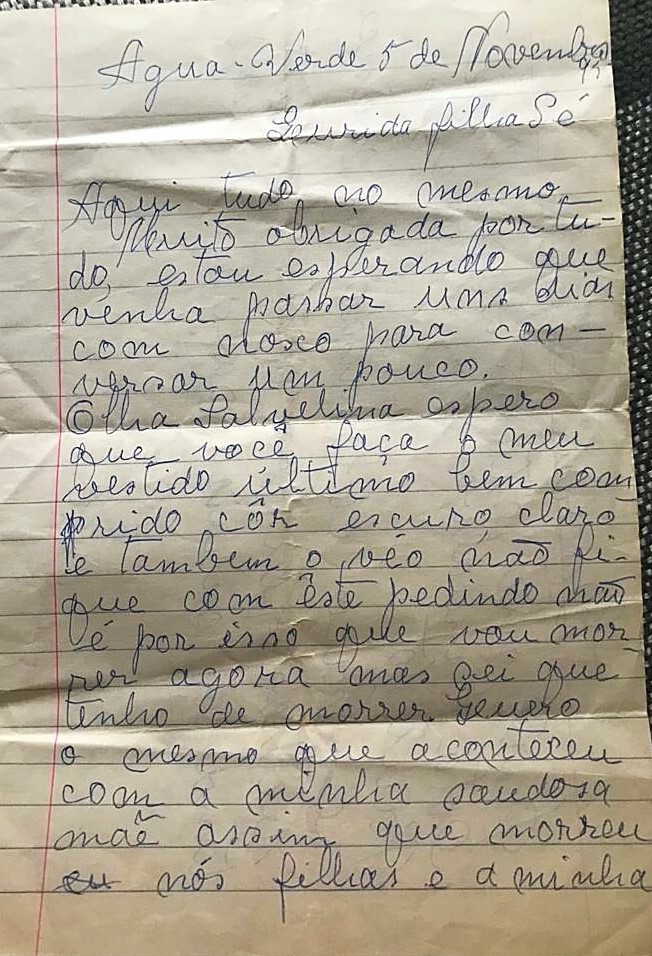 Agua-Verde 5 de Novembro
filha Sé
Aqui tudo no mesmo
Muito obrigada por tu-
do, estou esperando que
venha passar uns dias
com nosco para con-
versar um pouco.
Olha Salvelina espero
que você faça o meu
vestido último bem com
prido côr escuro, claro
e tambem o véo não fi-
que com êste pedindo não
é por isso que vou mor
rer agora mas sei que
tenho de morrer.
o mesmo que aconteceu
com a minha saudosa
maẽ assim que morreu
nós filhas e a minha